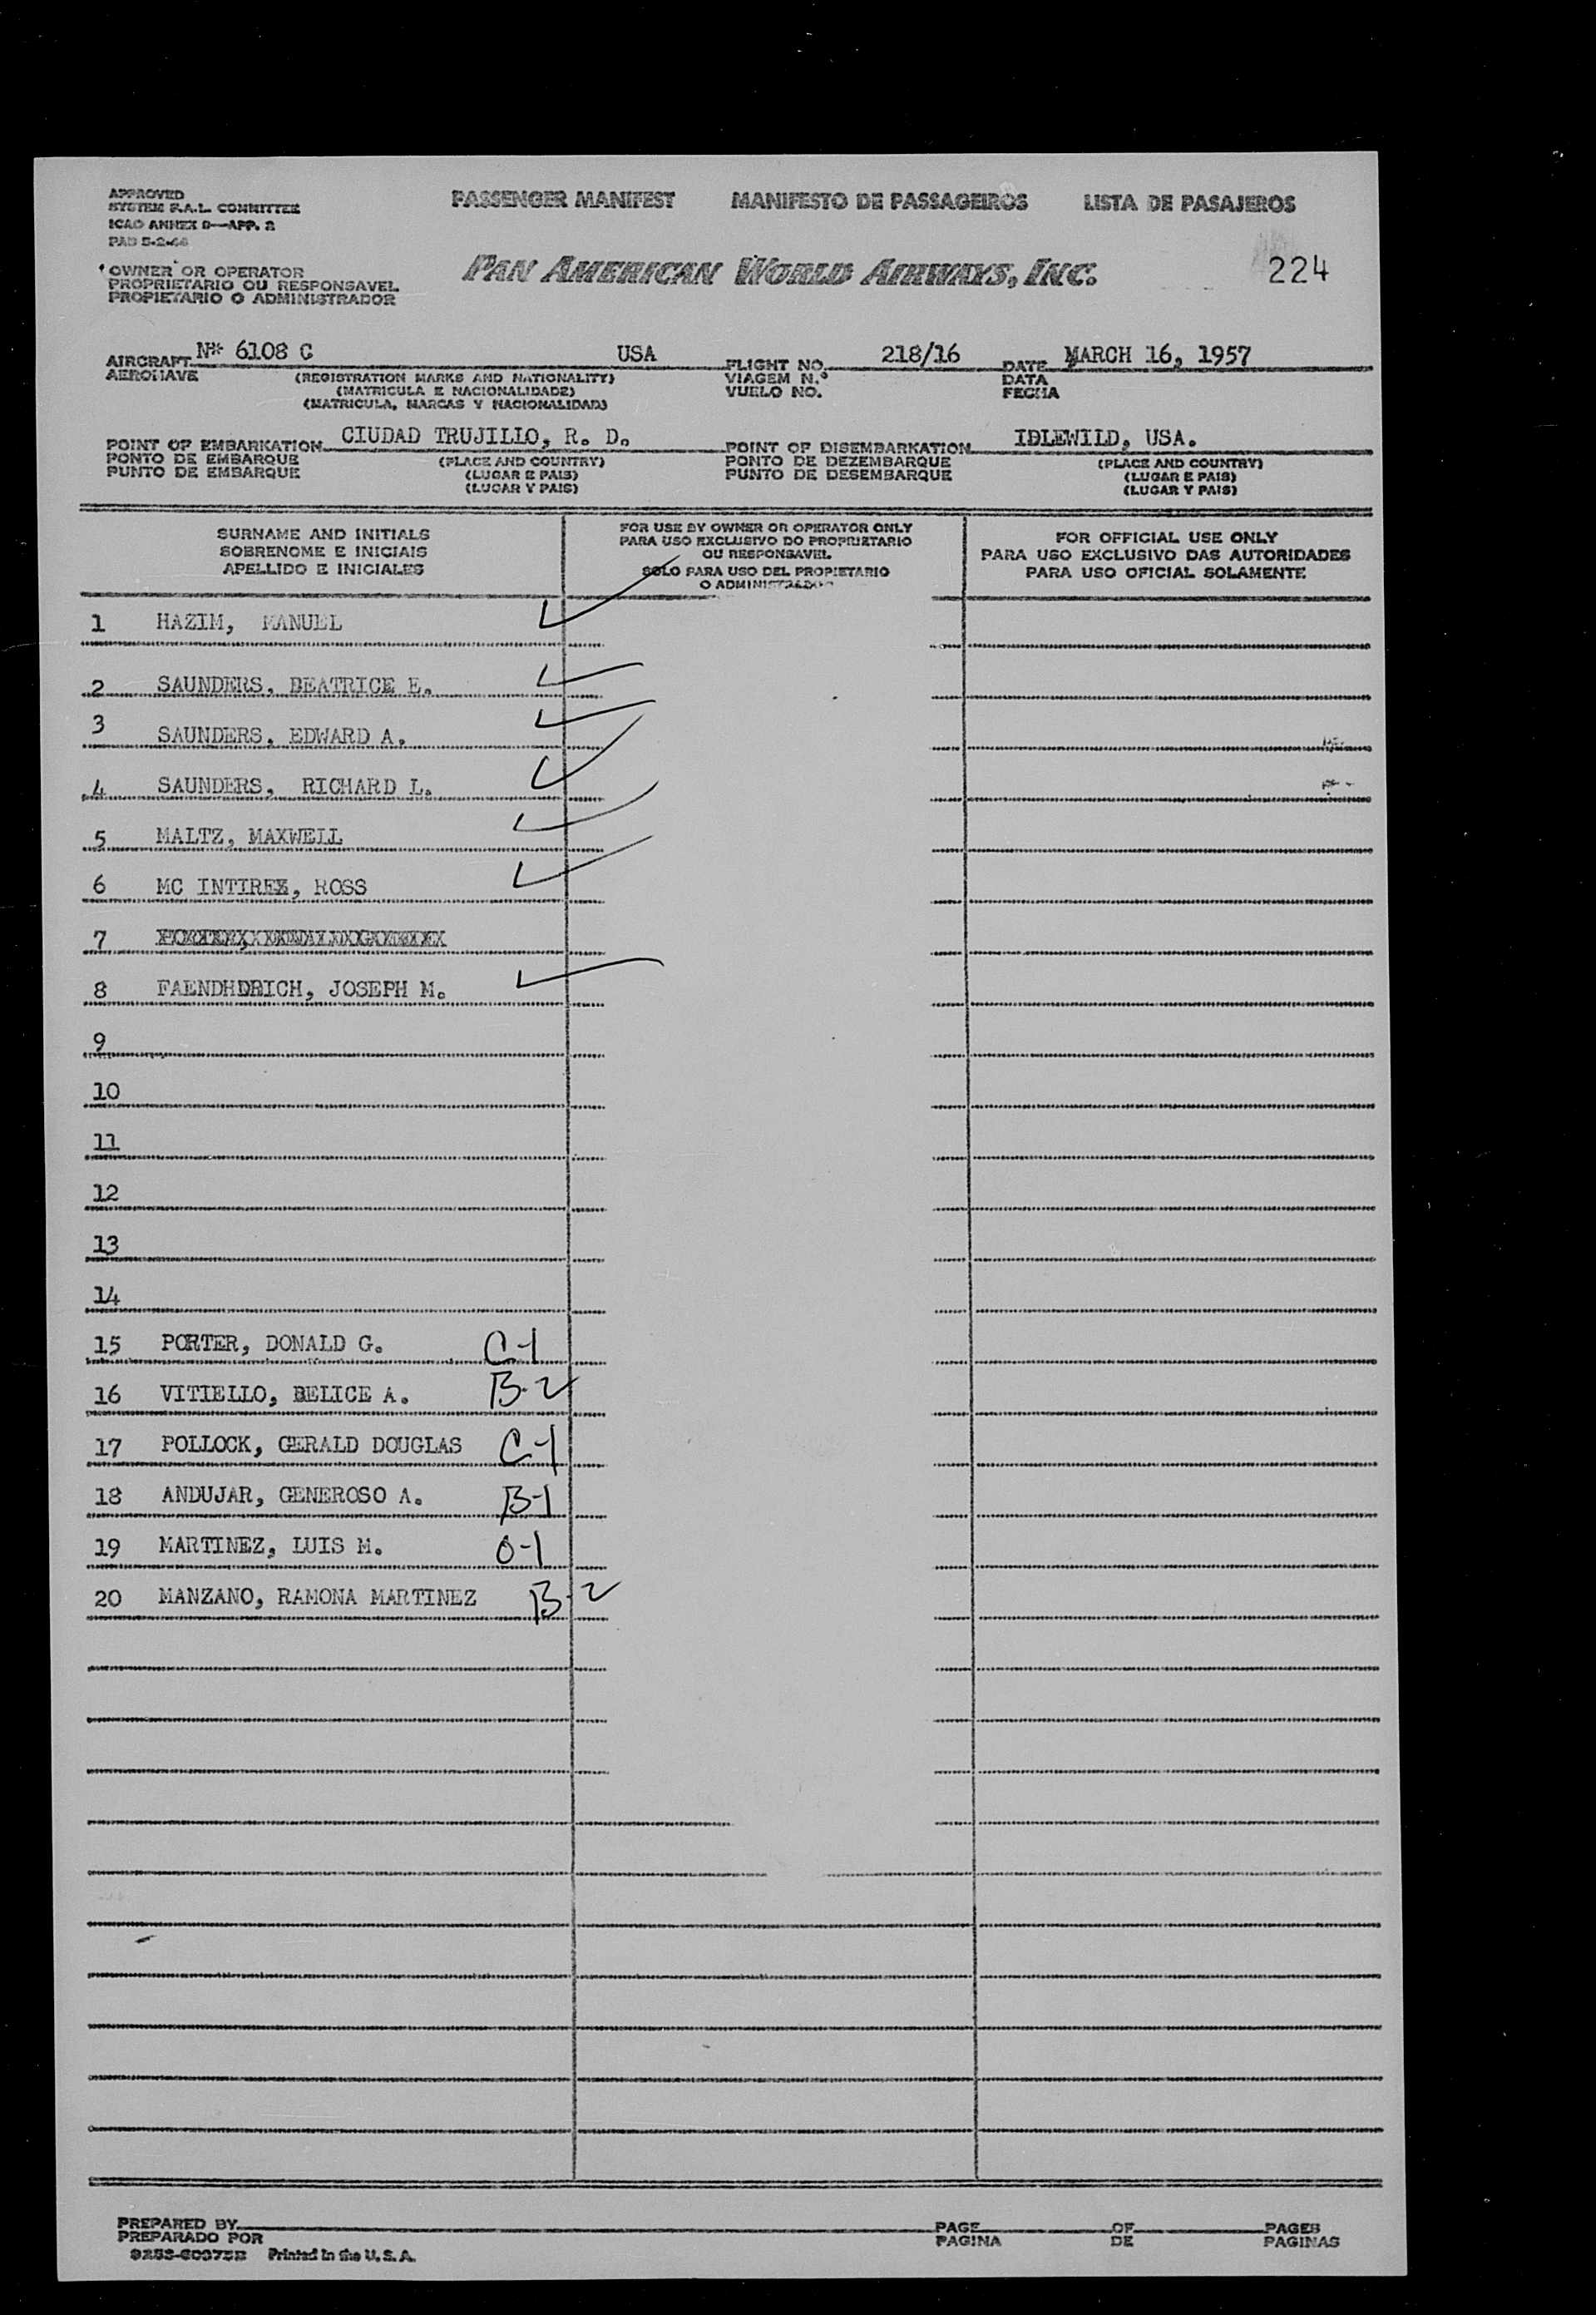 APPROVED
SYSTEM F.A.L. COMMITTEE
ICAO ANNEX 9—APP. 2
PAD 5-2-46
PASSENGER MANIFEST MANIFESTO DE PASSAGEIROS LISTA DE PASAJEROS
OWNER OR OPERATOR
PROPRIETARIO OU RESPONSAVEL
PROPIETARIO O ADMINISTRADOR
PAN AMERICAN WORLD AIRWAYS, INC.
224
AIRCRAFT N 6108 C USA FLIGHT NO. 218/16 DATE MARCH 16, 1957
AERONAVE (REGISTRATION MARKS AND NATIONALITY) VIAGEM N.º DATA
(MATRICULA E NACIONALIDADE) VUELO NO. FECHA
(MATRICULA, MARCAS Y NACIONALIDAD)
POINT OF EMBARKATION CIUDAD TRUJILLO, R. D. POINT OF DISEMBARKATION IDLEWILD, USA.
PONTO DE EMBARQUE (PLACE AND COUNTRY) PONTO DE DEZEMBARQUE (PLACE AND COUNTRY)
PUNTO DE EMBARQUE (LUGAR E PAIS) PUNTO DE DESEMBARQUE (LUGAR E PAIS)
(LUGAR Y PAIS) (LUGAR Y PAIS)
SURNAME AND INITIALS
SOBRENOME E INICIAIS
APELLIDO E INICIALES
FOR USE BY OWNER OR OPERATOR ONLY
PARA USO EXCLUSIVO DO PROPRIETARIO
OU RESPONSAVEL
SOLO PARA USO DEL PROPIETARIO
O ADMINISTRADOR
FOR OFFICIAL USE ONLY
PARA USO EXCLUSIVO DAS AUTORIDADES
PARA USO OFICIAL SOLAMENTE
1 HAZIM, MANUEL
2 SAUNDERS, BEATRICE E.
3 SAUNDERS, EDWARD A.
4 SAUNDERS, RICHARD L.
5 MALTZ, MAXWELL
6 MC INTIREX, ROSS
7
8 FAENDHDRICH, JOSEPH M.
9
10
11
12
13
14
15 PORTER, DONALD G. C-1
16 VITIELLO, BELICE A. B-2
17 POLLOCK, GERALD DOUGLAS C-1
18 ANDUJAR, GENEROSO A. B-1
19 MARTINEZ, LUIS M. O-1
20 MANZANO, RAMONA MARTINEZ B-2
PREPARED BY PAGE OF PAGES
PREPARADO POR PAGINA DE PAGINAS
Printed in the U.S.A.